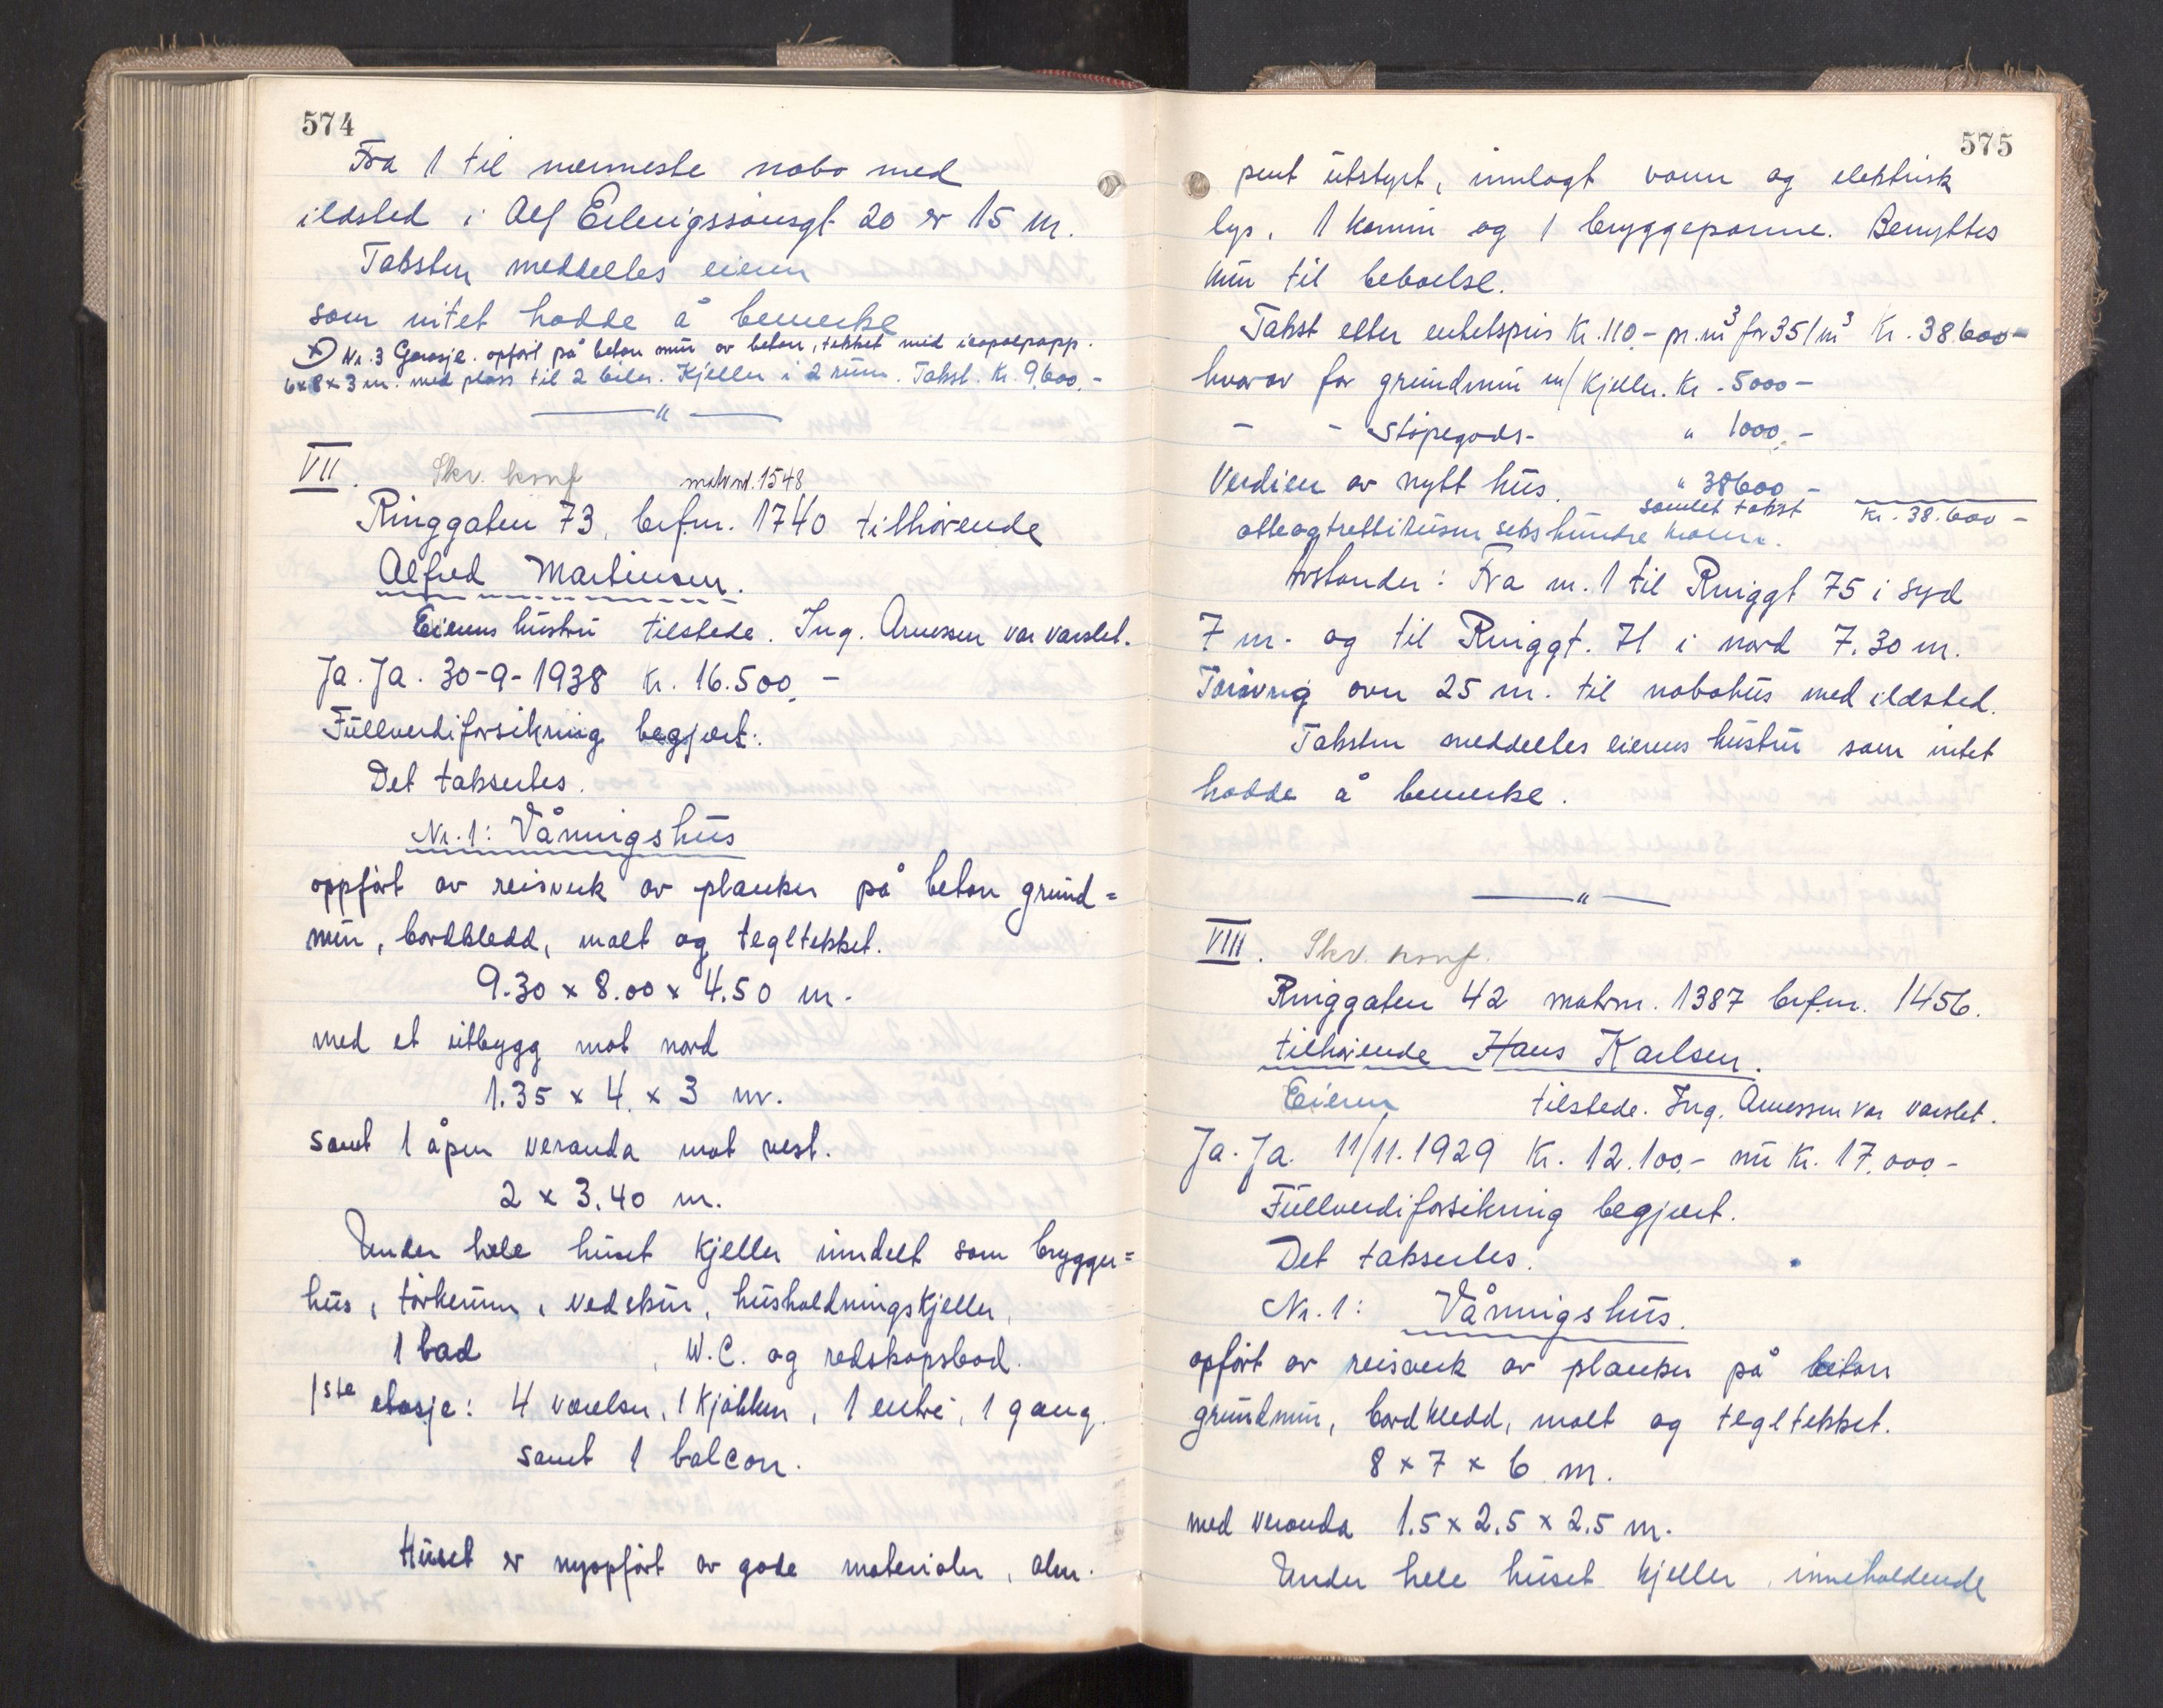 574
Fra 1 til nærmeste nabo med
ildsted i Alf Erlingssønsgt 20 er 15 m.
Taksten meddeltes eieren
som intet hadde å bemerke
x) Nr. 3 Garasje. opført på beton mur av beton, tekket med icopalpapp.
6x8x3 m. med plass til 2 biler. Kjeller i 2 rum. Takst. Kr. 9,600,-
— " —
VII. Skv. konf matr nr. 1548
Ringgaten 73, brf.nr. 1740 tilhørende
Alfred Martinsen.
Eierens hustru tilstede. Ing. Arnessen var varslet.
Ja. Ja. 30-9-1938 kr. 16.500,-
Fullverdiforsikring begjært:
Det takseredes.
Nr. 1: Våningshus
oppført av reisverk av planker på beton grund=
mur, bordkledd, malt og tegltekket.
9.30 x 8.00 x 4.50 m.
med et utbygg mot nord
1.35 x 4. x 3 m.
samt 1 åpen veranda mot vest.
2 x 3.40 m.
Under hele huset kjeller inndelt som brygger=
hus, tørkerum, vedskur, husholdningskjeller,
1 bad , W.C. og redskapsbod.
1ste etasje: 4 værelser, 1 kjøkken, 1 entré, 1 gang.
samt 1 balcon.
Huset er nyopført av gode materialer, alm.
575
pent utstyrt, innlagt vann og elektrisk
lys. 1 kamin og 1 bryggepanne. Benyttes
kun til beboelse.
Takst etter enhetspris Kr. 110.- pr. m³ for 351 m³ Kr. 38.600-
hvorav for grundmur m/ kjeller. Kr. 5000-
- - støpegods- " 1000,-
Verdien av nytt hus. " 38600-
samlet takst Kr. 38.600-
otteogtrettitusen seks hundre kroner.
Avstander: Fra nr. 1 til Ringgt 75 i syd
7 m. og til Ringgt. 71 i nord 7.30 m.
Forøvrig over 25 m. til nabohus med ildsted.
Taksten meddeltes eierens hustru som intet
hadde å bemerke.
— " —
VIII. Skv. konf.
Ringgaten 42 matrnr. 1387 brf.nr. 1456.
tilhørende Hans Karlsen.
Eieren tilstede. Ing. Arnessen var varslet.
Ja. Ja. 11/11. 1929 Kr. 12.100.- nu Kr. 17.000-
Fullverdiforsikring begjært.
Det takseredes.
Nr. 1: Våningshus.
opført av reisverk av planker på beton
grundmur, bordkledd, malt og tegltekket.
8 x 7 x 6 m.
med veranda 1.5 x 2.5 x 2.5 m.
Under hele huset kjeller, inneholdende